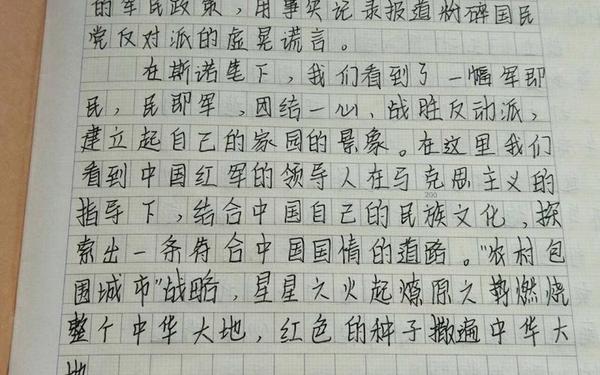 的军民政策，用事实记录报道粉碎国民
党反对派的虚晃谎言。
在斯诺笔下，我们看到了一幅军即
民，民即军，团结一心，战胜反动派，
建立起自己的家园的景象。在这里我们
看到中国红军的领导人在马克思主义的
200
指导下，结合中国自己的民族文化，探
索出一条符合中国国情的道路。"农村包
围城市"战略，星星之火起燎原之势燃烧
整个中华大地，红色的种子撒遍中华大
地